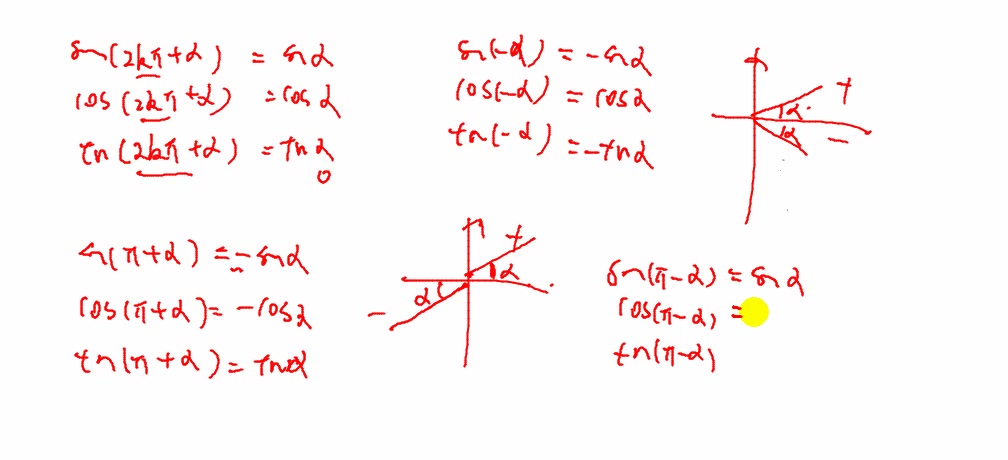 sin(2kπ+α) = sinα
cos(2kπ+α) = cosα
tan(2kπ+α) = tanα
sin(-α) = -sinα
cos(-α) = cosα
tan(-α) = -tanα
+
α
α
-
sin(π+α) = -sinα
cos(π+α) = -cosα
tan(π+α) = tanα
+
α
α
-
sin(π-α) = sinα
cos(π-α) =
tan(π-α)